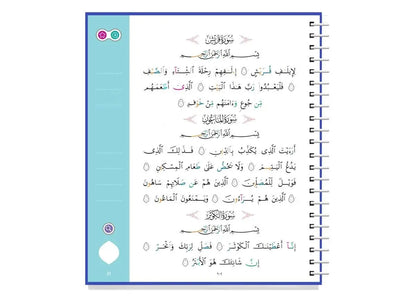 سورة قريش
بسم الله الرحمن الرحيم
لإيلف قريش ۝ إۦلفهم رحلة الشتاء والصيف
۝ فليعبدوا رب هذا البيت ۝ الذي أطعمهم
من جوع وءامنهم من خوف ۝
سورة الماعون
بسم الله الرحمن الرحيم
أرءيت الذي يكذب بالدين ۝ فذلك الذي
يدع اليتيم ۝ ولا يحض على طعام المسكين ۝
فويل للمصلين ۝ الذين هم عن صلاتهم ساهون
۝ الذين هم يراءون ۝ ويمنعون الماعون ۝
سورة الكوثر
بسم الله الرحمن الرحيم
إنا أعطينك الكوثر ۝ فصل لربك وانحر ۝
إن شانئك هو الأبتر ۝